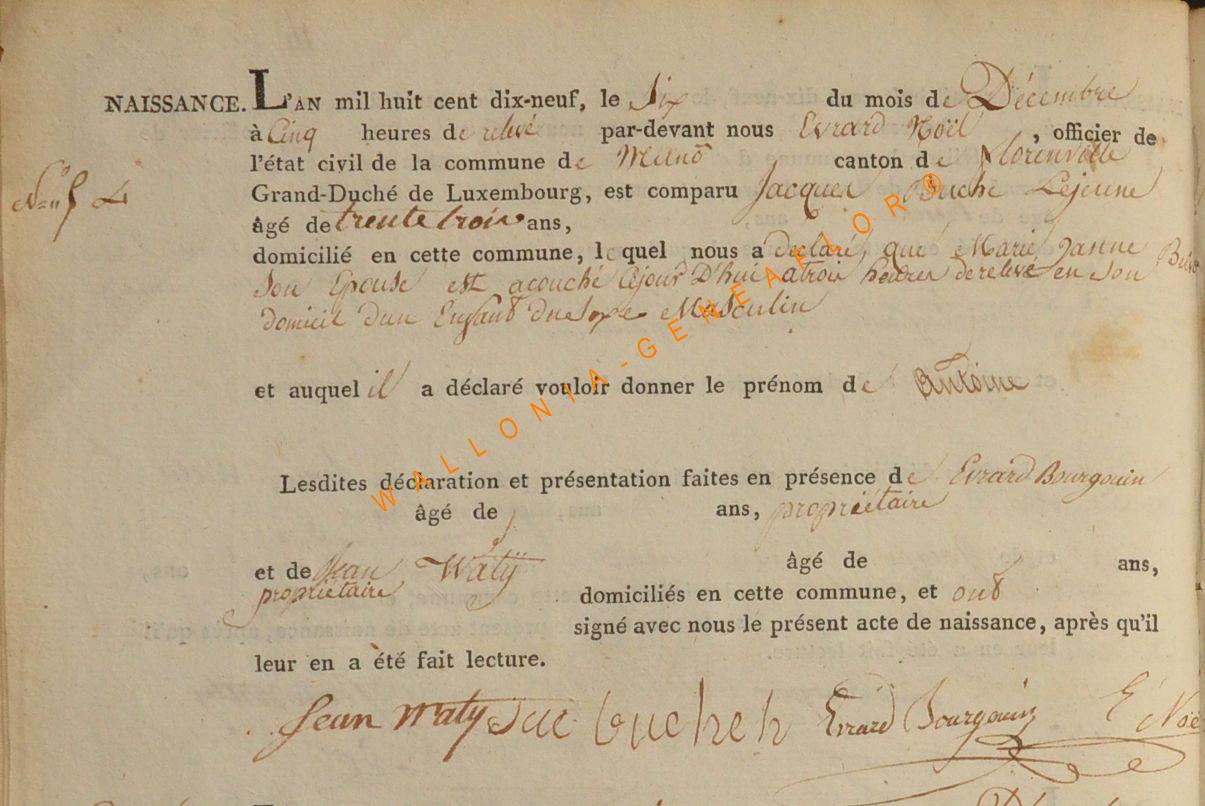 NAISSANCE. L'AN mil huit cent dix-neuf, le Six du mois de Décembre
à Cinq heures de relevé par-devant nous Evrard Noël, officier de
l'état civil de la commune de Muno canton de florenville
Grand-Duché de Luxembourg, est comparu Jacques Buche Lejeune
âgé de trente trois ans,
domicilié en cette commune, lequel nous a declaré, que Marie Janne
Son Epouse est acouché Cejour D'hui atrois heures de relevé en Son
domicil d'un Enfant du Sexe Masculin
et auquel il a déclaré vouloir donner le prénom de Antoine
Lesdites déclaration et présentation faites en présence de Evrard Bourgouin
âgé de ans, propriétaire
et de Jean Watÿ âgé de ans,
propriétaire domiciliés en cette commune, et ont
signé avec nous le présent acte de naissance, après qu'il
leur en a été fait lecture.
Jean Waty Evrard Bourgouin E Noë
WALLONIA-GENEAFLOR®